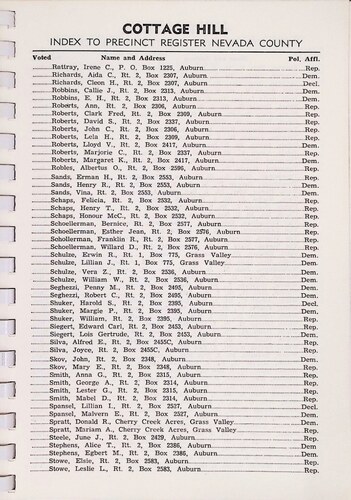 COTTAGE HILL
INDEX TO PRECINCT REGISTER NEVADA COUNTY
Voted Name and Address Pol. Affl.
Rattray, Irene C., P. O. Box 1225, Auburn Rep.
Richards, Aida C., Rt. 2, Box 2307, Auburn Dem.
Richards, Cleon H., Rt. 2, Box 2307, Auburn Decl.
Robbins, Callie J., Rt. 2, Box 2313, Auburn Dem.
Robbins, E. H., Rt. 2, Box 2313, Auburn Dem.
Roberts, Ann, Rt. 2, Box 2306, Auburn Rep.
Roberts, Clark Fred, Rt. 2, Box 2309, Auburn Rep.
Roberts, David S., Rt. 2, Box 2337, Auburn Rep.
Roberts, John C., Rt. 2, Box 2306, Auburn Rep.
Roberts, Lela H., Rt. 2, Box 2309, Auburn Rep.
Roberts, Lloyd V., Rt. 2, Box 2417, Auburn Dem.
Roberts, Marjorie C., Rt. 2, Box 2337, Auburn Rep.
Roberts, Margaret K., Rt. 2, Box 2417, Auburn Dem.
Robles, Albertus O., Rt. 2, Box 2596, Auburn Rep.
Sands, Erman H., Rt. 2, Box 2553, Auburn Rep.
Sands, Henry R., Rt. 2, Box 2553, Auburn Dem.
Sands, Vina, Rt. 2, Box 2553, Auburn Dem.
Schaps, Felicia, Rt. 2, Box 2532, Auburn Rep.
Schaps, Henry T., Rt. 2, Box 2532, Auburn Rep.
Schaps, Honour McC., Rt. 2, Box 2532, Auburn Rep.
Schoellerman, Bernice, Rt. 2, Box 2577, Auburn Rep.
Schoellerman, Esther Jean, Rt. 2, Box 2576, Auburn Rep.
Schoellerman, Franklin R., Rt. 2, Box 2577, Auburn Rep.
Schoellerman, Willard D., Rt. 2, Box 2576, Auburn Rep.
Schulze, Erwin R., Rt. 1, Box 775, Grass Valley Dem.
Schulze, Lillian J., Rt. 1, Box 775, Grass Valley Dem.
Schulze, Vera Z., Rt. 2, Box 2536, Auburn Dem.
Schulze, William W., Rt. 2, Box 2536, Auburn Dem.
Seghezzi, Penny M., Rt. 2, Box 2495, Auburn Dem.
Seghezzi, Robert C., Rt. 2, Box 2495, Auburn Dem.
Shuker, Harold S., Rt. 2, Box 2395, Auburn Decl.
Shuker, Margie P., Rt. 2, Box 2395, Auburn Dem.
Shuker, William, Rt. 2, Box 2395, Auburn Rep.
Siegert, Edward Carl, Rt. 2, Box 2453, Auburn Rep.
Siegert, Lois Gertrude, Rt. 2, Box 2453, Auburn Dem.
Silva, Alfred E., Rt. 2, Box 2455C, Auburn Rep.
Silva, Joyce, Rt. 2, Box 2455C, Auburn Rep.
Skov, John, Rt. 2, Box 2348, Auburn Dem.
Skov, Mary E., Rt. 2, Box 2348, Auburn Rep.
Smith, Anna G., Rt. 2, Box 2315, Auburn Rep.
Smith, George A., Rt. 2, Box 2314, Auburn Rep.
Smith, Lester G., Rt. 2, Box 2315, Auburn Rep.
Smith, Mabel D., Rt. 2, Box 2314, Auburn Rep.
Spansel, Lillian I., Rt. 2, Box 2527, Auburn Decl.
Spansel, Malvern E., Rt. 2, Box 2527, Auburn Dem.
Spratt, Donald R., Cherry Creek Acres, Grass Valley Dem.
Spratt, Mariam A., Cherry Creek Acres, Grass Valley Rep.
Steele, June J., Rt. 2, Box 2429, Auburn Rep.
Stephens, Alice T., Rt. 2, Box 2386, Auburn Dem.
Stephens, Egbert M., Rt. 2, Box 2386, Auburn Dem.
Stowe, Elsie, Rt. 2, Box 2583, Auburn Rep.
Stowe, Leslie L., Rt. 2, Box 2583, Auburn Rep.